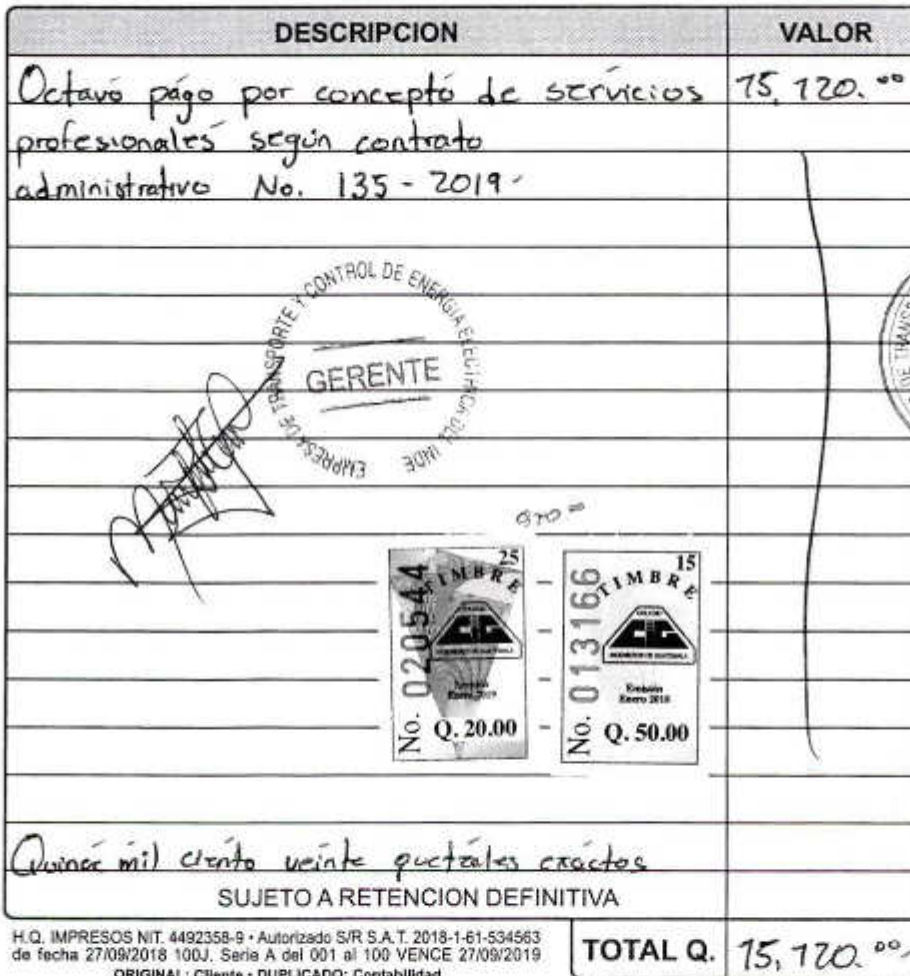 DESCRIPCION VALOR
Octavo págo por concepto de servicios 15,120.⁰⁰
profesionales según contrato
administrativo No. 135-2019-
EMPRESA DE TRANSPORTE Y CONTROL DE ENERGIA ELECTRICA DEL INDE
GERENTE
DE TRANSPO
25
TIMBRE
No. 020544
COLEGIO
CIG
INGENIEROS DE GUATEMALA
Emisión
Enero 2019
Q. 20.00
15
TIMBRE
No. 013166
COLEGIO
CIG
INGENIEROS DE GUATEMALA
Emisión
Enero 2018
Q. 50.00
Quince mil ciento veinte quetzales exactos
SUJETO A RETENCION DEFINITIVA
H.Q. IMPRESOS NIT. 4492358-9 • Autorizado S/R S.A.T. 2018-1-61-534563
de fecha 27/09/2018 100J. Serie A del 001 al 100 VENCE 27/09/2019
ORIGINAL: Cliente • DUPLICADO: Contabilidad
TOTAL Q. 15,120.⁰⁰